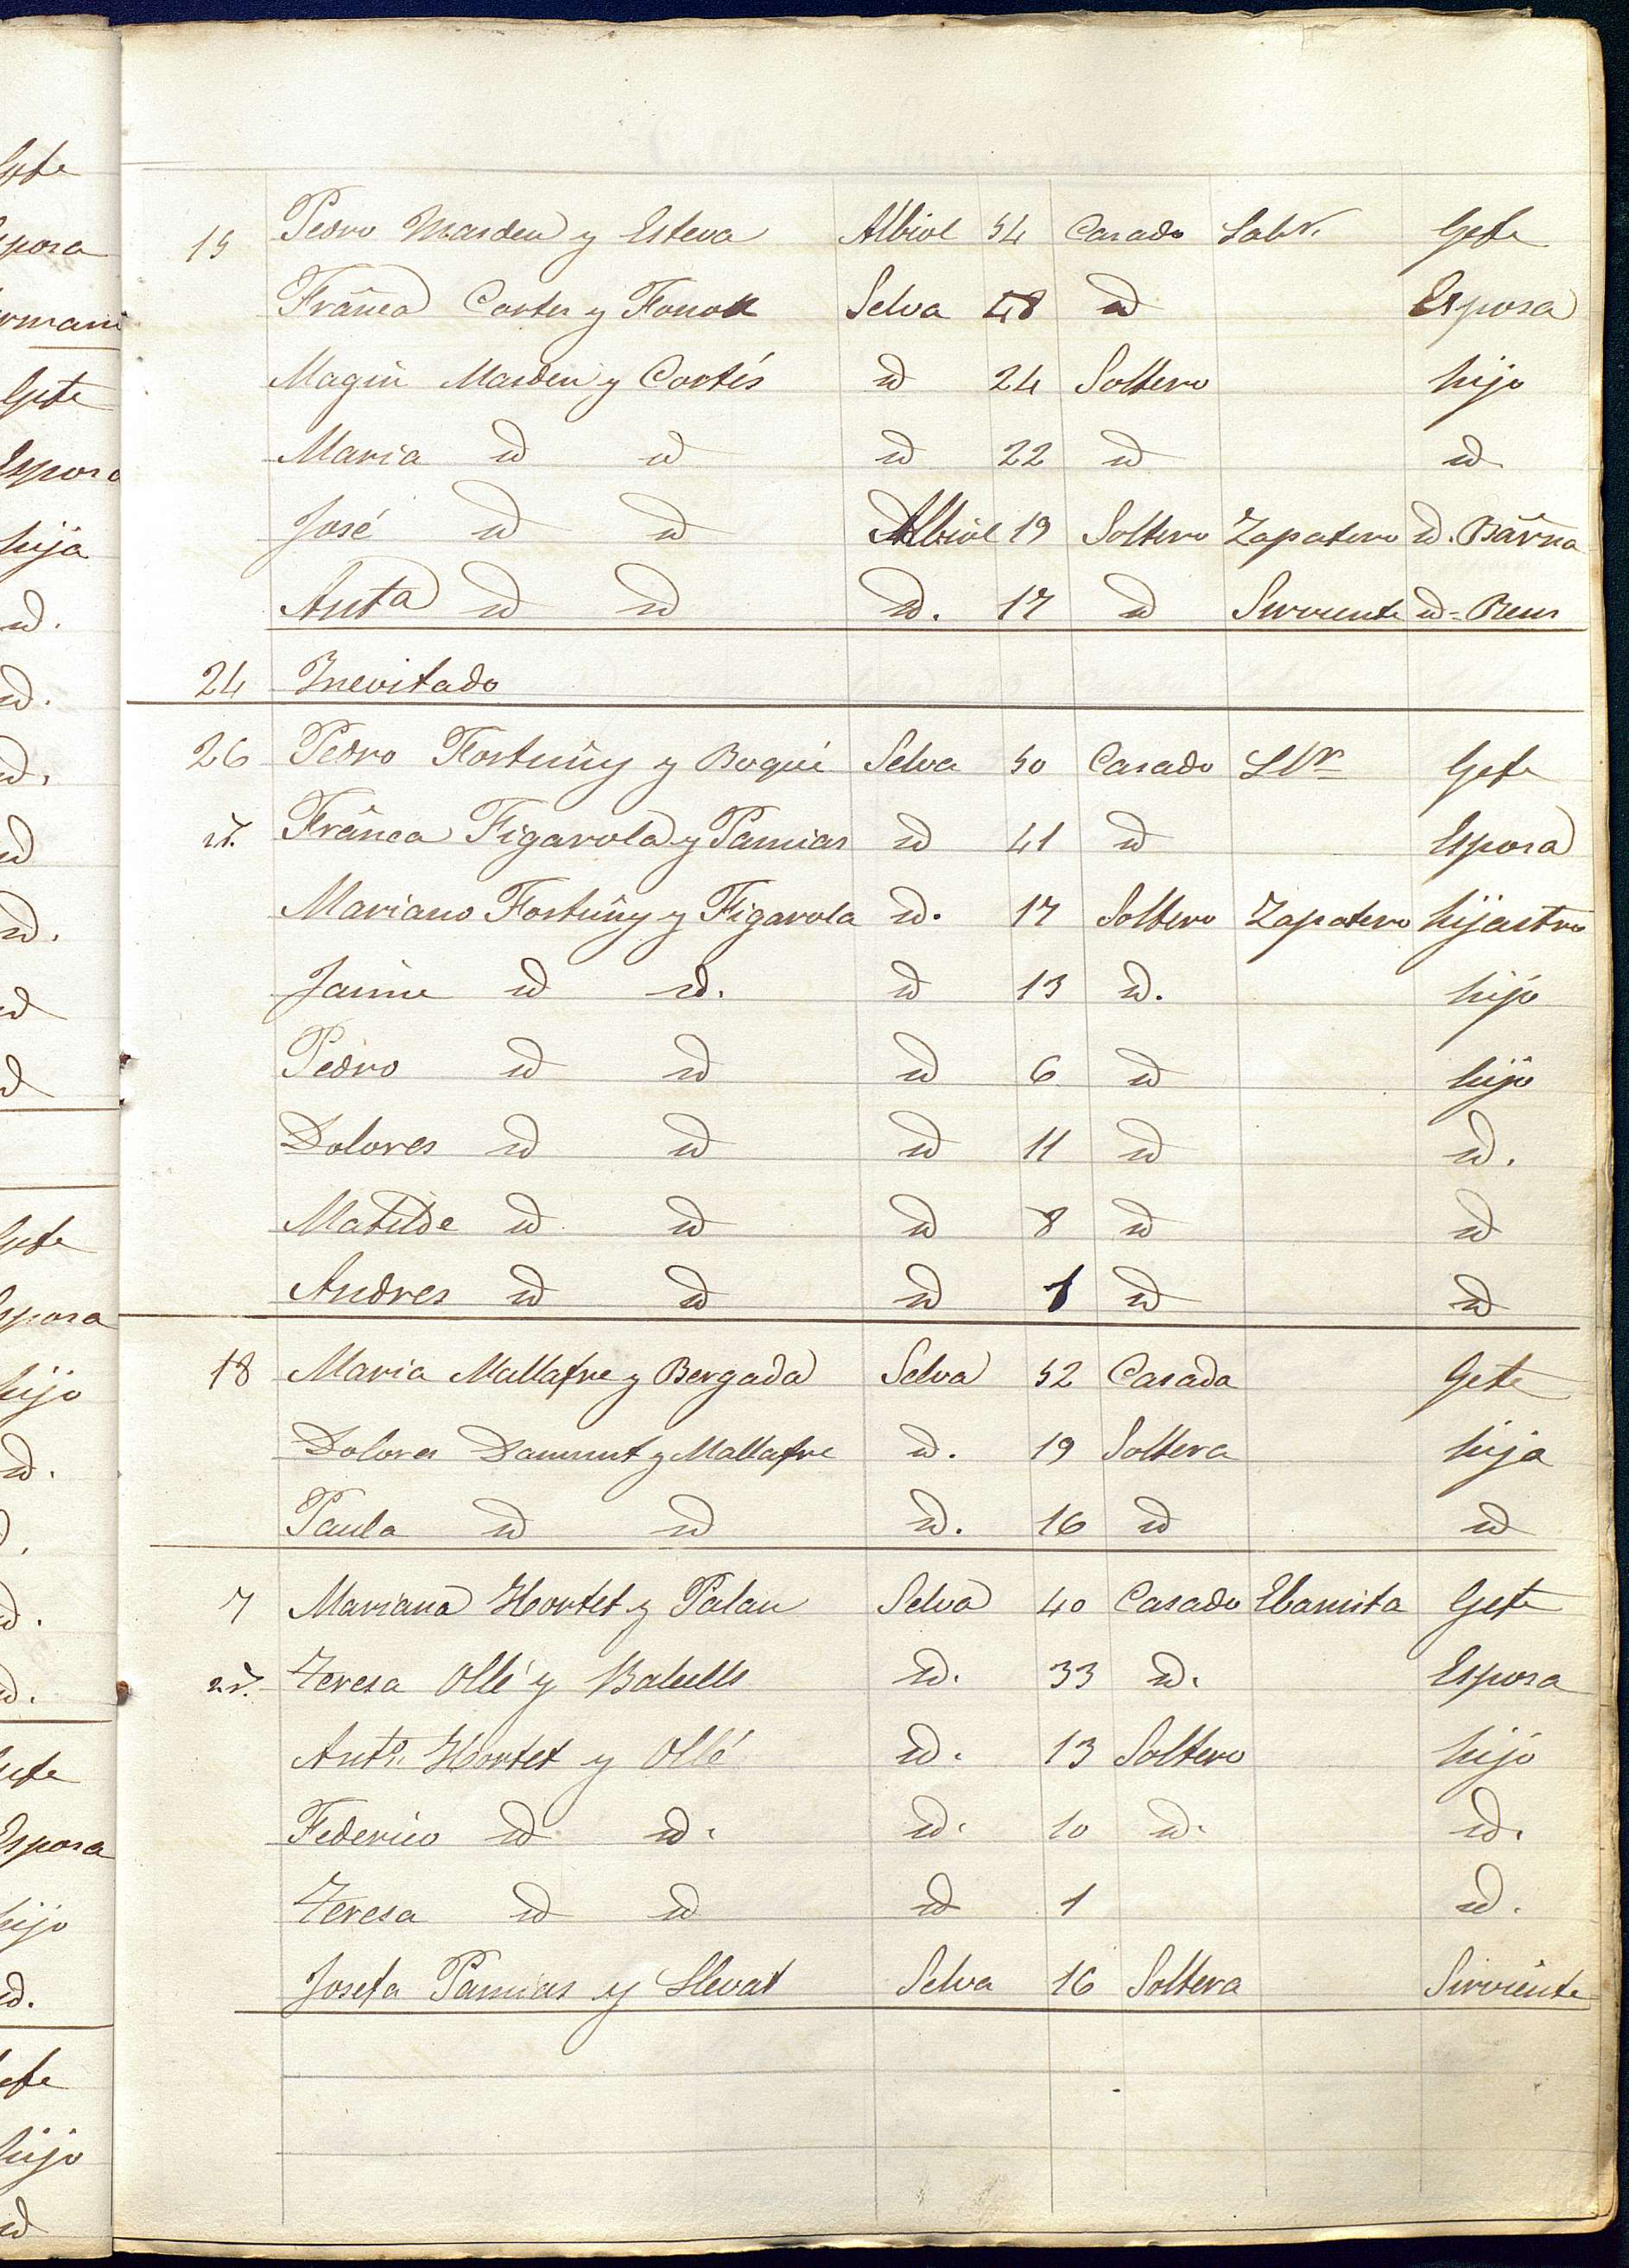 15 Pedro Masdeu y Esteva Albiol 54 Casado Labr. Gefe
Franca Cortes y Selva 48 id Esposa
Magin Masdeu y Cortés id 24 Soltero hijo
Maria id id id 22 id id.
José id id Albiol 19 Soltero Zapatero id. Barna
Anta id id id. 17 id Sirviente id - Reus
24 Inevitado
26 Pedro Fortuñy y Boqué Selva 50 Casado Lbr Gefe
id. Franca Figarola y Pamias id 41 id Esposa
Mariano Fortuñy y Figarola id. 17 Soltero Zapatero hijastro
Jaime id id. id 13 id. hijo
Pedro id id id 6 id hijo
Dolores id id id 11 id id.
Matilde id id id 8 id id
Andres id id id 1 id id
18 Maria Mallafre y Bergada Selva 52 Casada Gefe
Dolores y Mallafre id. 19 Soltera hija
Paula id id id. 16 id id
7 Mariano Hortet y Palau Selva 40 Casado Ebanista Gefe
id. Teresa Ollé y Babells id. 33 id. Esposa
Anto. Hortet y Ollé id. 13 Soltero hijo
Federico id id. id. 10 id. id.
Teresa id id id 1 id.
Josefa Pamias y Llevat Selva 16 Soltera Sirviente
Gefe
Esposa
Gefe
Esposa
hija
id.
id.
id.
id
id.
id
id
Gefe
Esposa
hijo
id.
id.
id.
id.
Gefe
Esposa
hijo
id.
Gefe
hijo
id